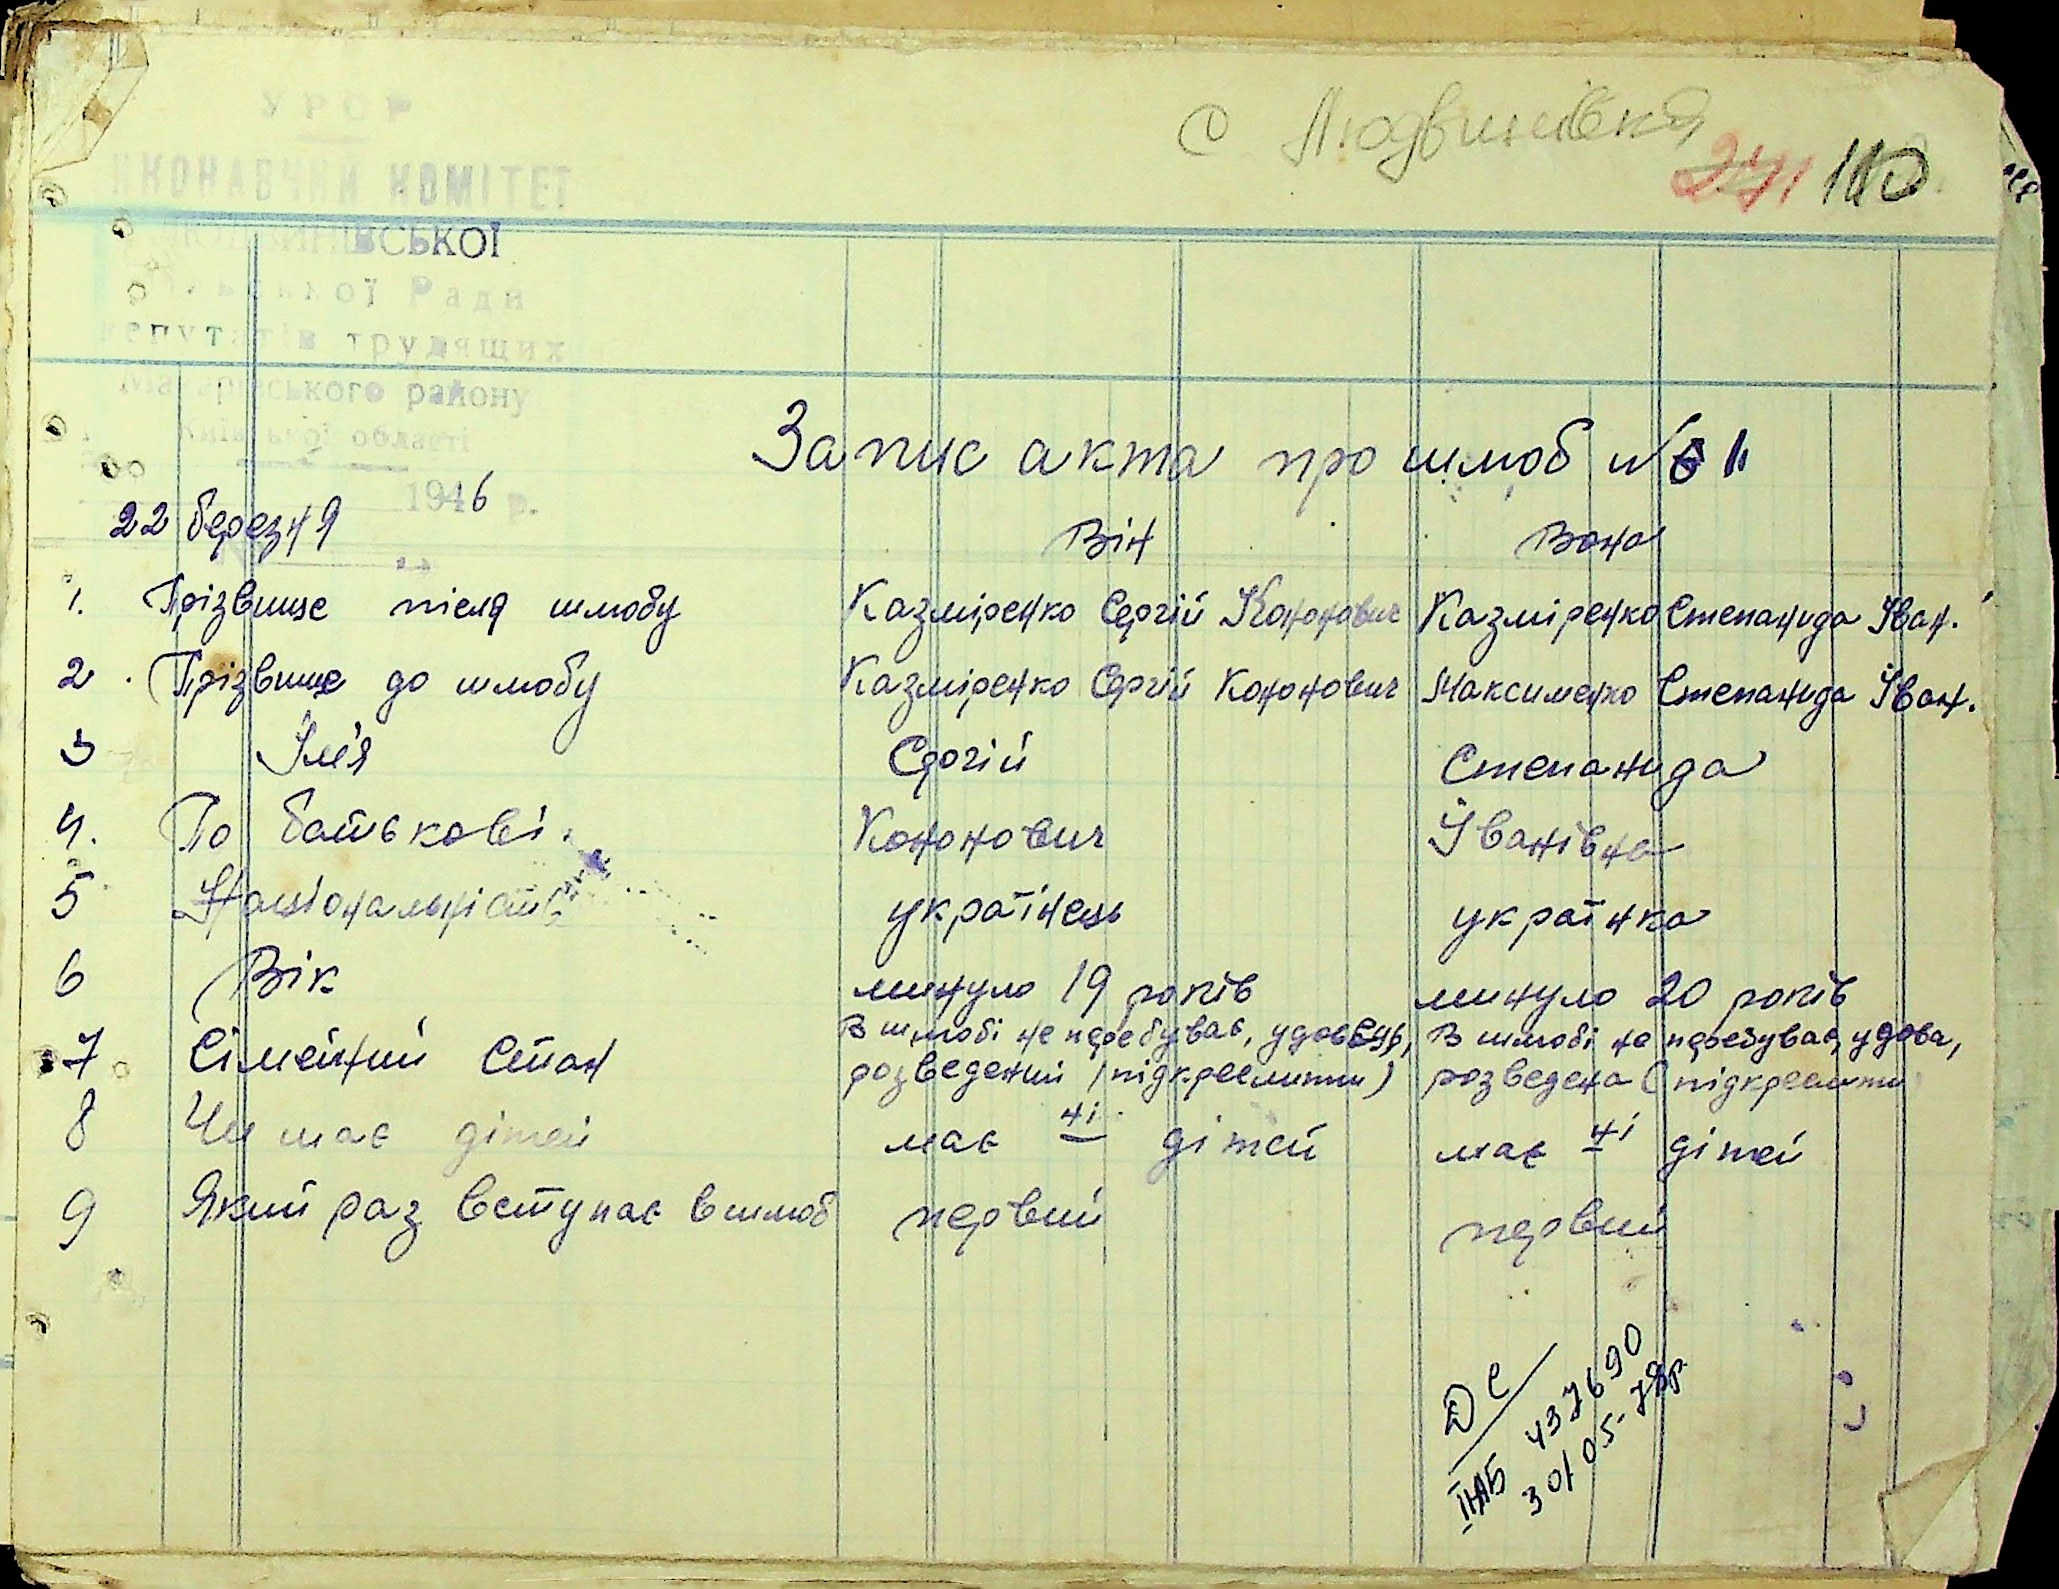 УРСР
с Людвинівка
241 110
ВИКОНАВЧИЙ КОМІТЕТ
ЛЮДВИНІВСЬКОЇ
сільської Ради
депутатів трудящих
Макарівського району
Київської області
1946 р.
Запис акта про шлюб № 1
22 березня
Він Вона
1. Прізвище після шлюбу Казміренко Сергій Кононович Казміренко Степанида Іван.
2. Прізвище до шлюбу Казміренко Сергій Кононович Максименко Степанида Іван.
3 Ім'я Сергій Степанида
4. По батькові. Кононович Іванівна
5 Національність українець українка
6 Вік минуло 19 років минуло 20 років
7 Сімейний стан В шлюбі не перебуває, удовець, В шлюбі не перебуває, удова,
розведений (підкреслити) розведена (підкреслити
8 Чи має дітей має ні дітей має ні дітей
9 Який раз вступає в шлюб первий первий
ДС
ІІ-АБ 437690
30/05-78р